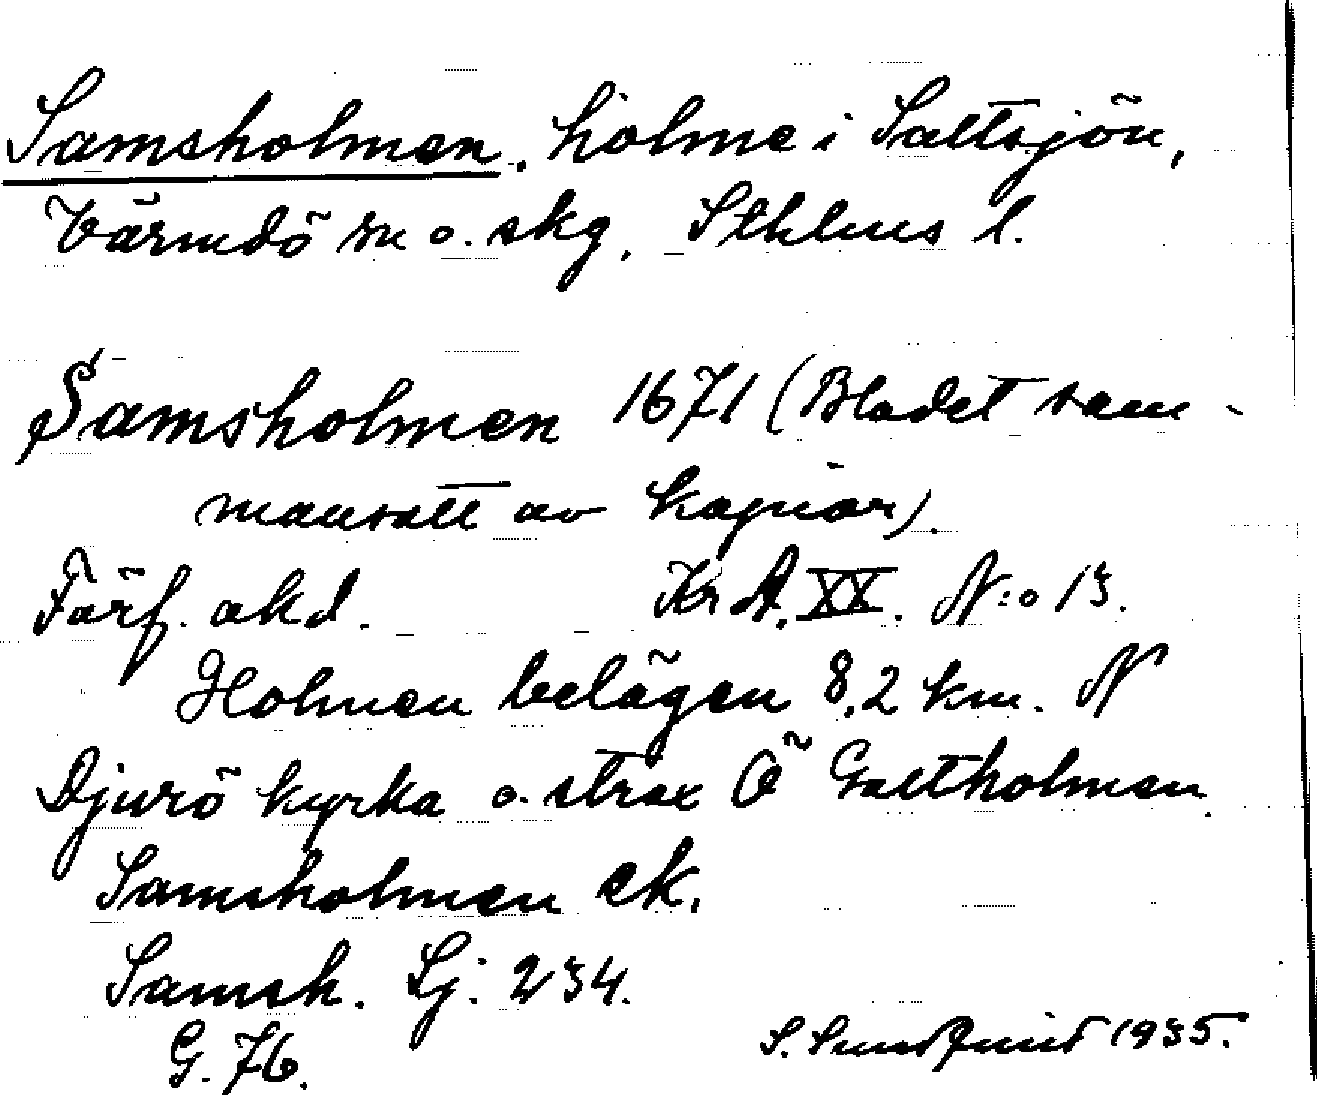 Samsholmen, holme i Saltsjön,
Värmdö sn o. skg, Sthlms l.
Samsholmen 1671 (Bladet sam-
mansatt av kopior).
Förf. okd. Kr A. XX. N:o 13.
Holmen belägen 8,2 km. N
Djurö kyrka o. strax Ö Galtholmen.
Samsholmen ek.
Samsh. Sj. 234.
G. 76.
S. Sundquist 1935.